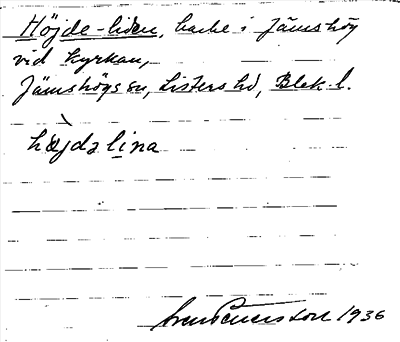 Höjde-liden, backe i Jämshög
vid kyrkan,
Jämshögs sn, Listers hd, Blek. l.
hæjdəlina
1936